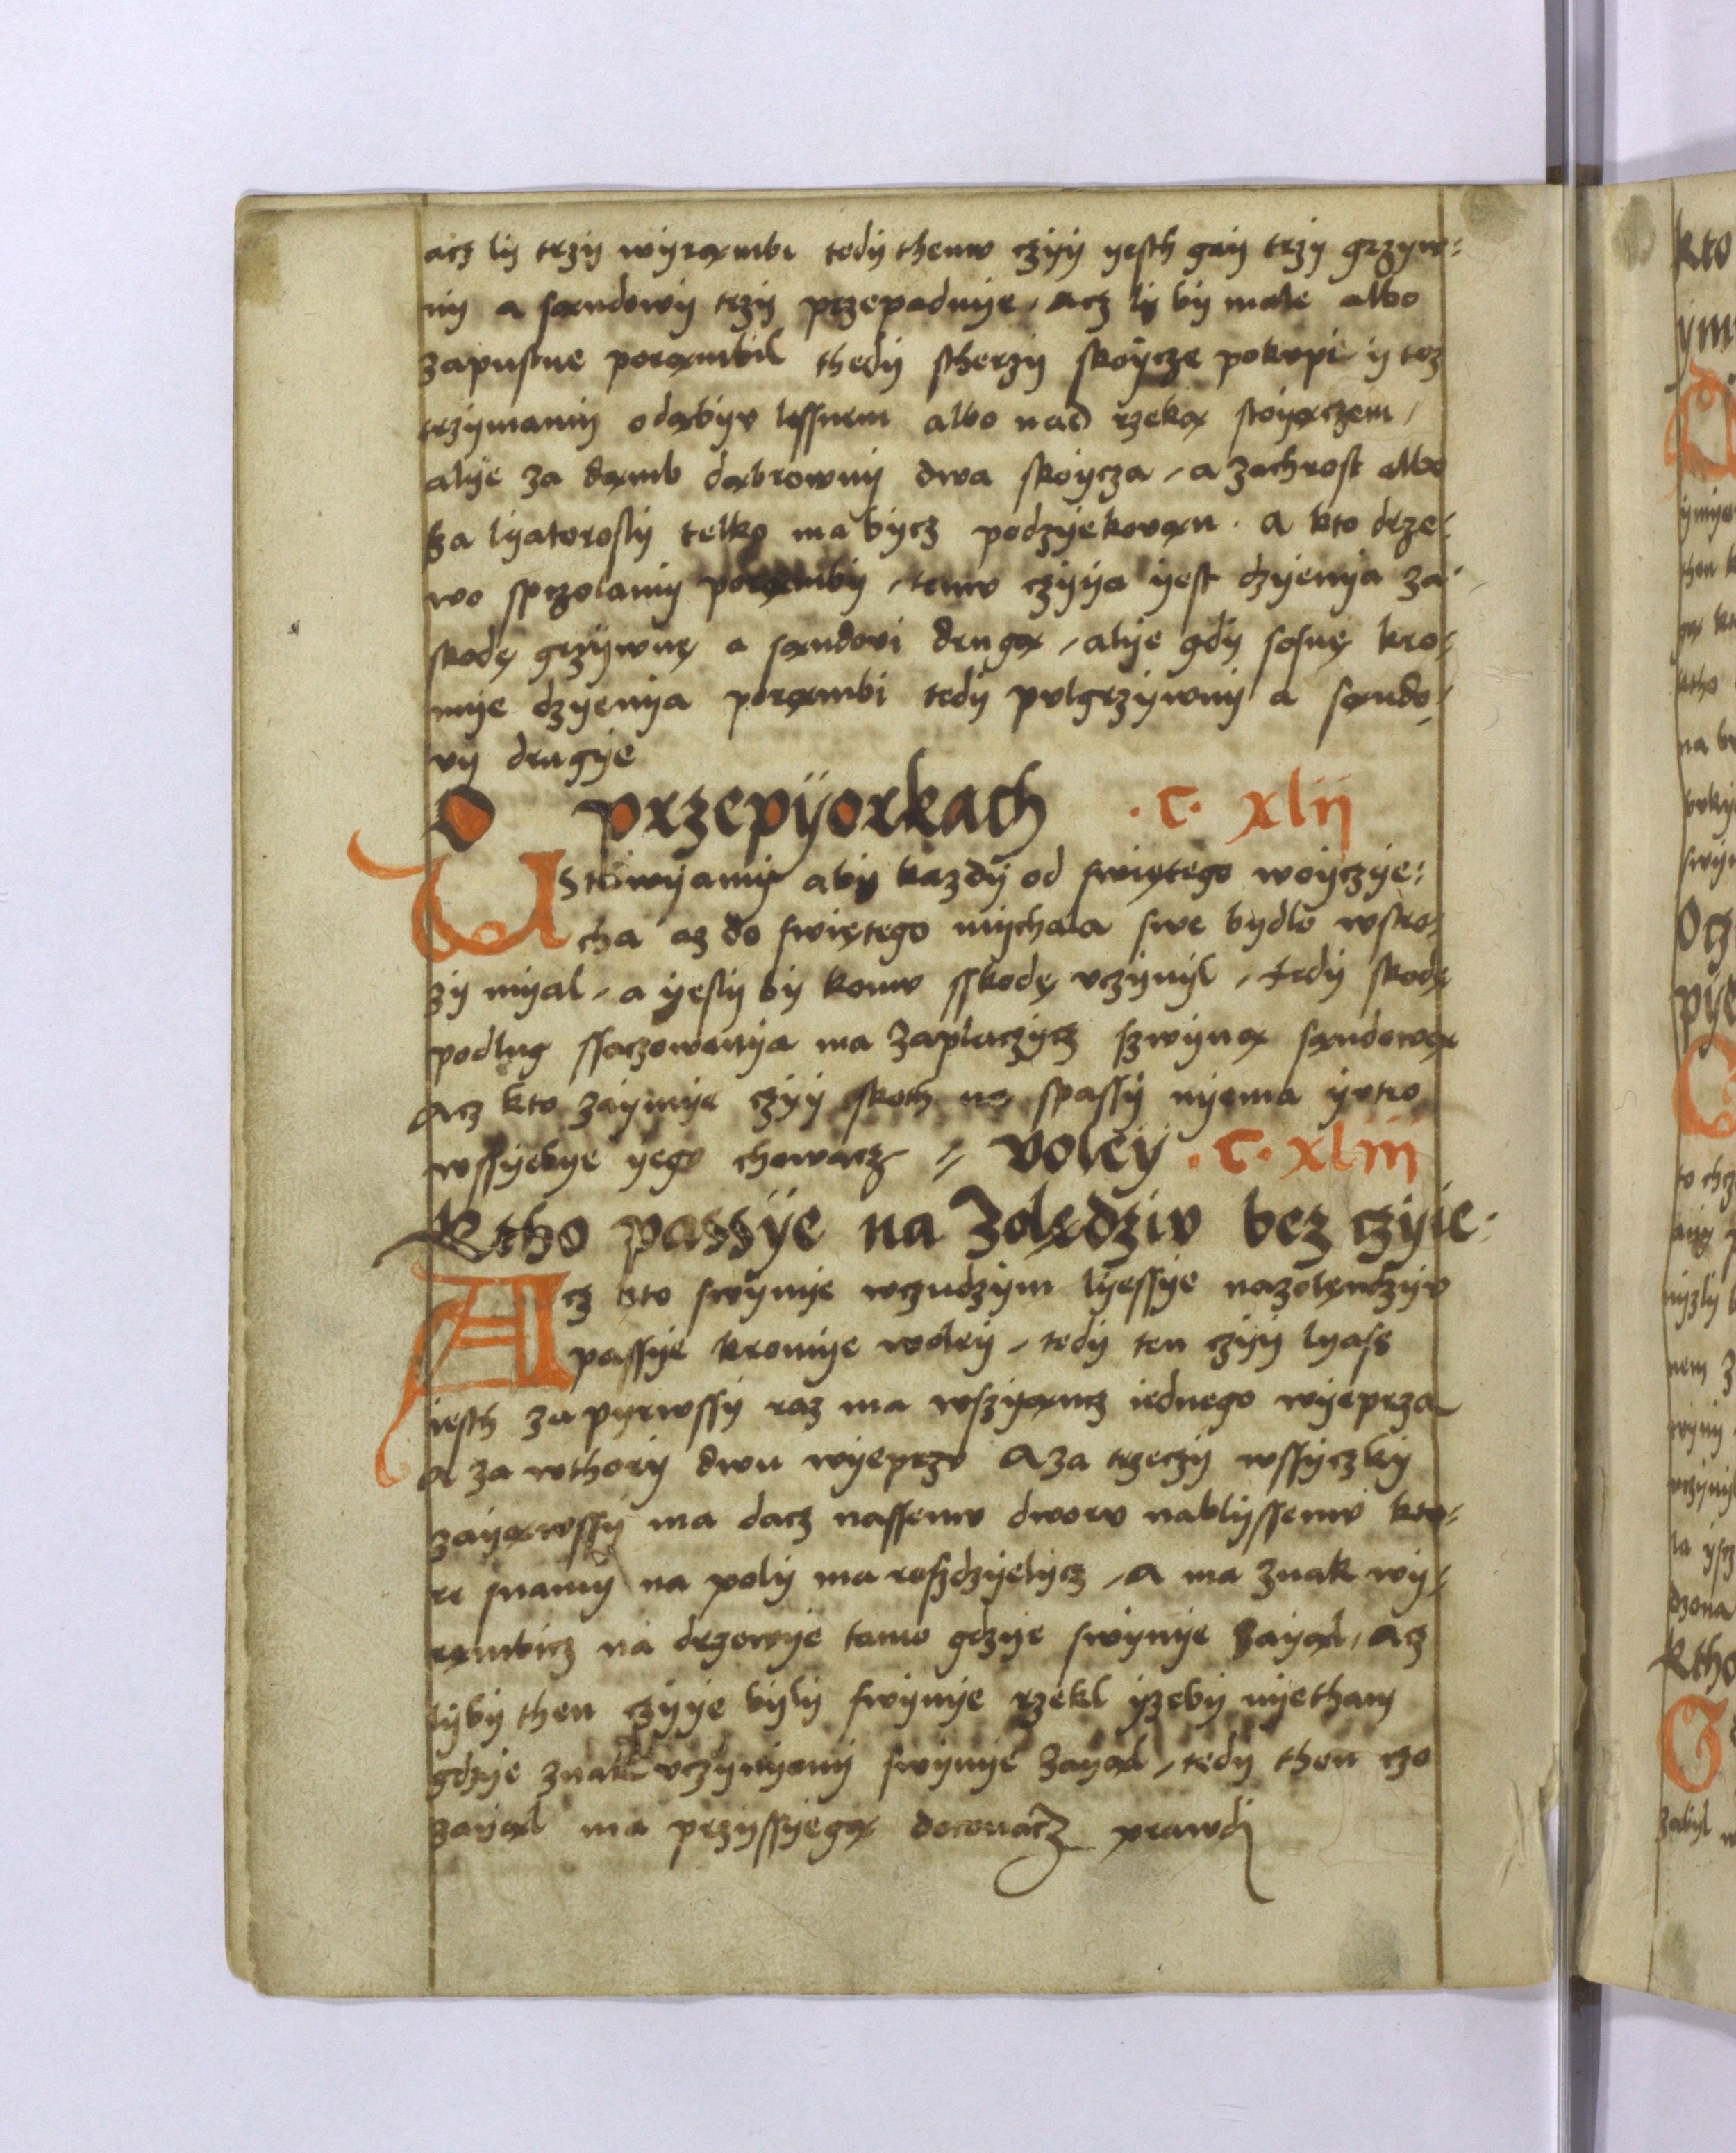 acz ly trzy wyrąmbi tedy themv czyy yesth gay trzy grzyw:
ny a sąndowy trzy przepadnye, acz ly by male albo
zapustne porąmbil thedy stherzy skoycze pokvpi y tez
trzymamy o dąbyv lessnem albo nad rzeką stoyączem,
alye za dąmb dąbrowny dwa skoycza, a zachrost albo
za lyatorosly telko ma bycz podzyekovąn. a kto drze:
wo sprzolamy porąmby, temv czyya yest dzyenya za
skodę grzywnę a sąndovi drugą, alye gdy sosnę kro:
mye dzyenya porąmbi tedy pvlgrzywny a sąndo:
vy drugye
O przepyorkach .C. xlii
Ustawyamy aby kazdy od swiętego woyczye:
cha az do swiętego mychala swe bydlo wstro:
zy myal, a yesly by komv sskodę vczynyl, tedy skodę
podlug ssaczowanya ma zaplaczycz szwyną sąndową
acz kto zaymye czyy skoth na spassy nyema yvtro
wssyebye yego chowacz // voley .C. xliii
Ktho passye na Zolędziv bez czyie:
Acz kto swynye wczudzym lyessye nazolęndzyv
passye kromye woley, tedy ten czyy lyass
iesth za pyrwssy raz ma wszyąncz iednego wyeprza
a za wthory dwu wyeprzv a za trzeczy wssyczky
zayąwssy ma dacz nassemv dworv nablyssemv kto:
re snamy na poly ma roszdzyelycz, a ma znak wy:
rąmbicz na drzewye tamo gdzye swynye zayąl, acz
lyby then czyye byly swynye rzekl yzeby nyetham
gdzye znak vczynyony swynye zayąl, tedy then czo
zayąl ma przyssyegą doconacz prawdy